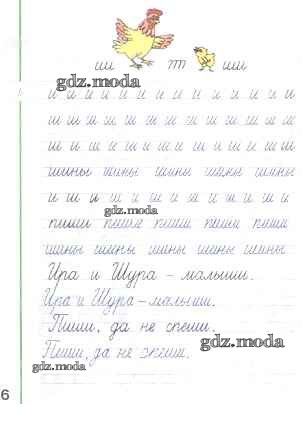 ши т ши
gdz.moda
и и и и и и и и и и и и и
ш ш ш ш ш ш ш ш ш ш ш ш
ш и ш и ш и ш и ш и ш ш ш
шины шины шины шины шины
и и и ш и ш и ш и ш и и
gdz.moda
пиши пиши пиши пиши пиши
шины шины шины шины шины
Ира и Шура – малыши.
Ира и Шура – малыши.
Пиши, да не спеши.
gdz.moda
Пиши, да не спеши.
gdz.moda
6